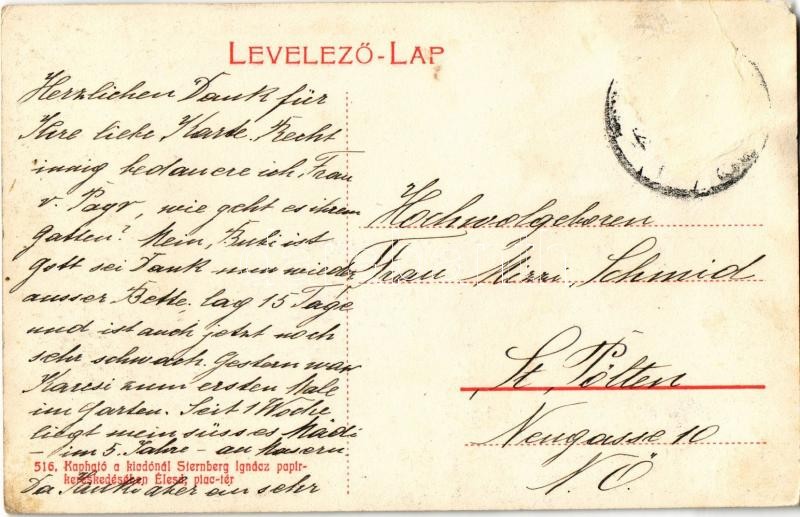 LEVELEZŐ-LAP
Herzlichen Dank für
Ihre liebe Karte. Recht
innig bedauere ich Frau
v. Pagr, wie geht es ihrem
Gatten? Mein Buki ist
Gott sei Dank nun wieder
ausser Bette, lag 15 Tage
und ist auch jetzt noch
sehr schwach. Gestern war
Karesi zum ersten Male
im Garten. Seit 1 Woche
liegt mein süsses Mädi
- im 5. Jahre - an Masern
Da aber an sehr
Hochwolgeboren
Frau Mizzi Schmid
St. Pölten
Neugasse 10
N.Ö.
516, Kapható a kiadónál Sternberg Ignácz papir-
kereskedésében Élesd, piac-tér